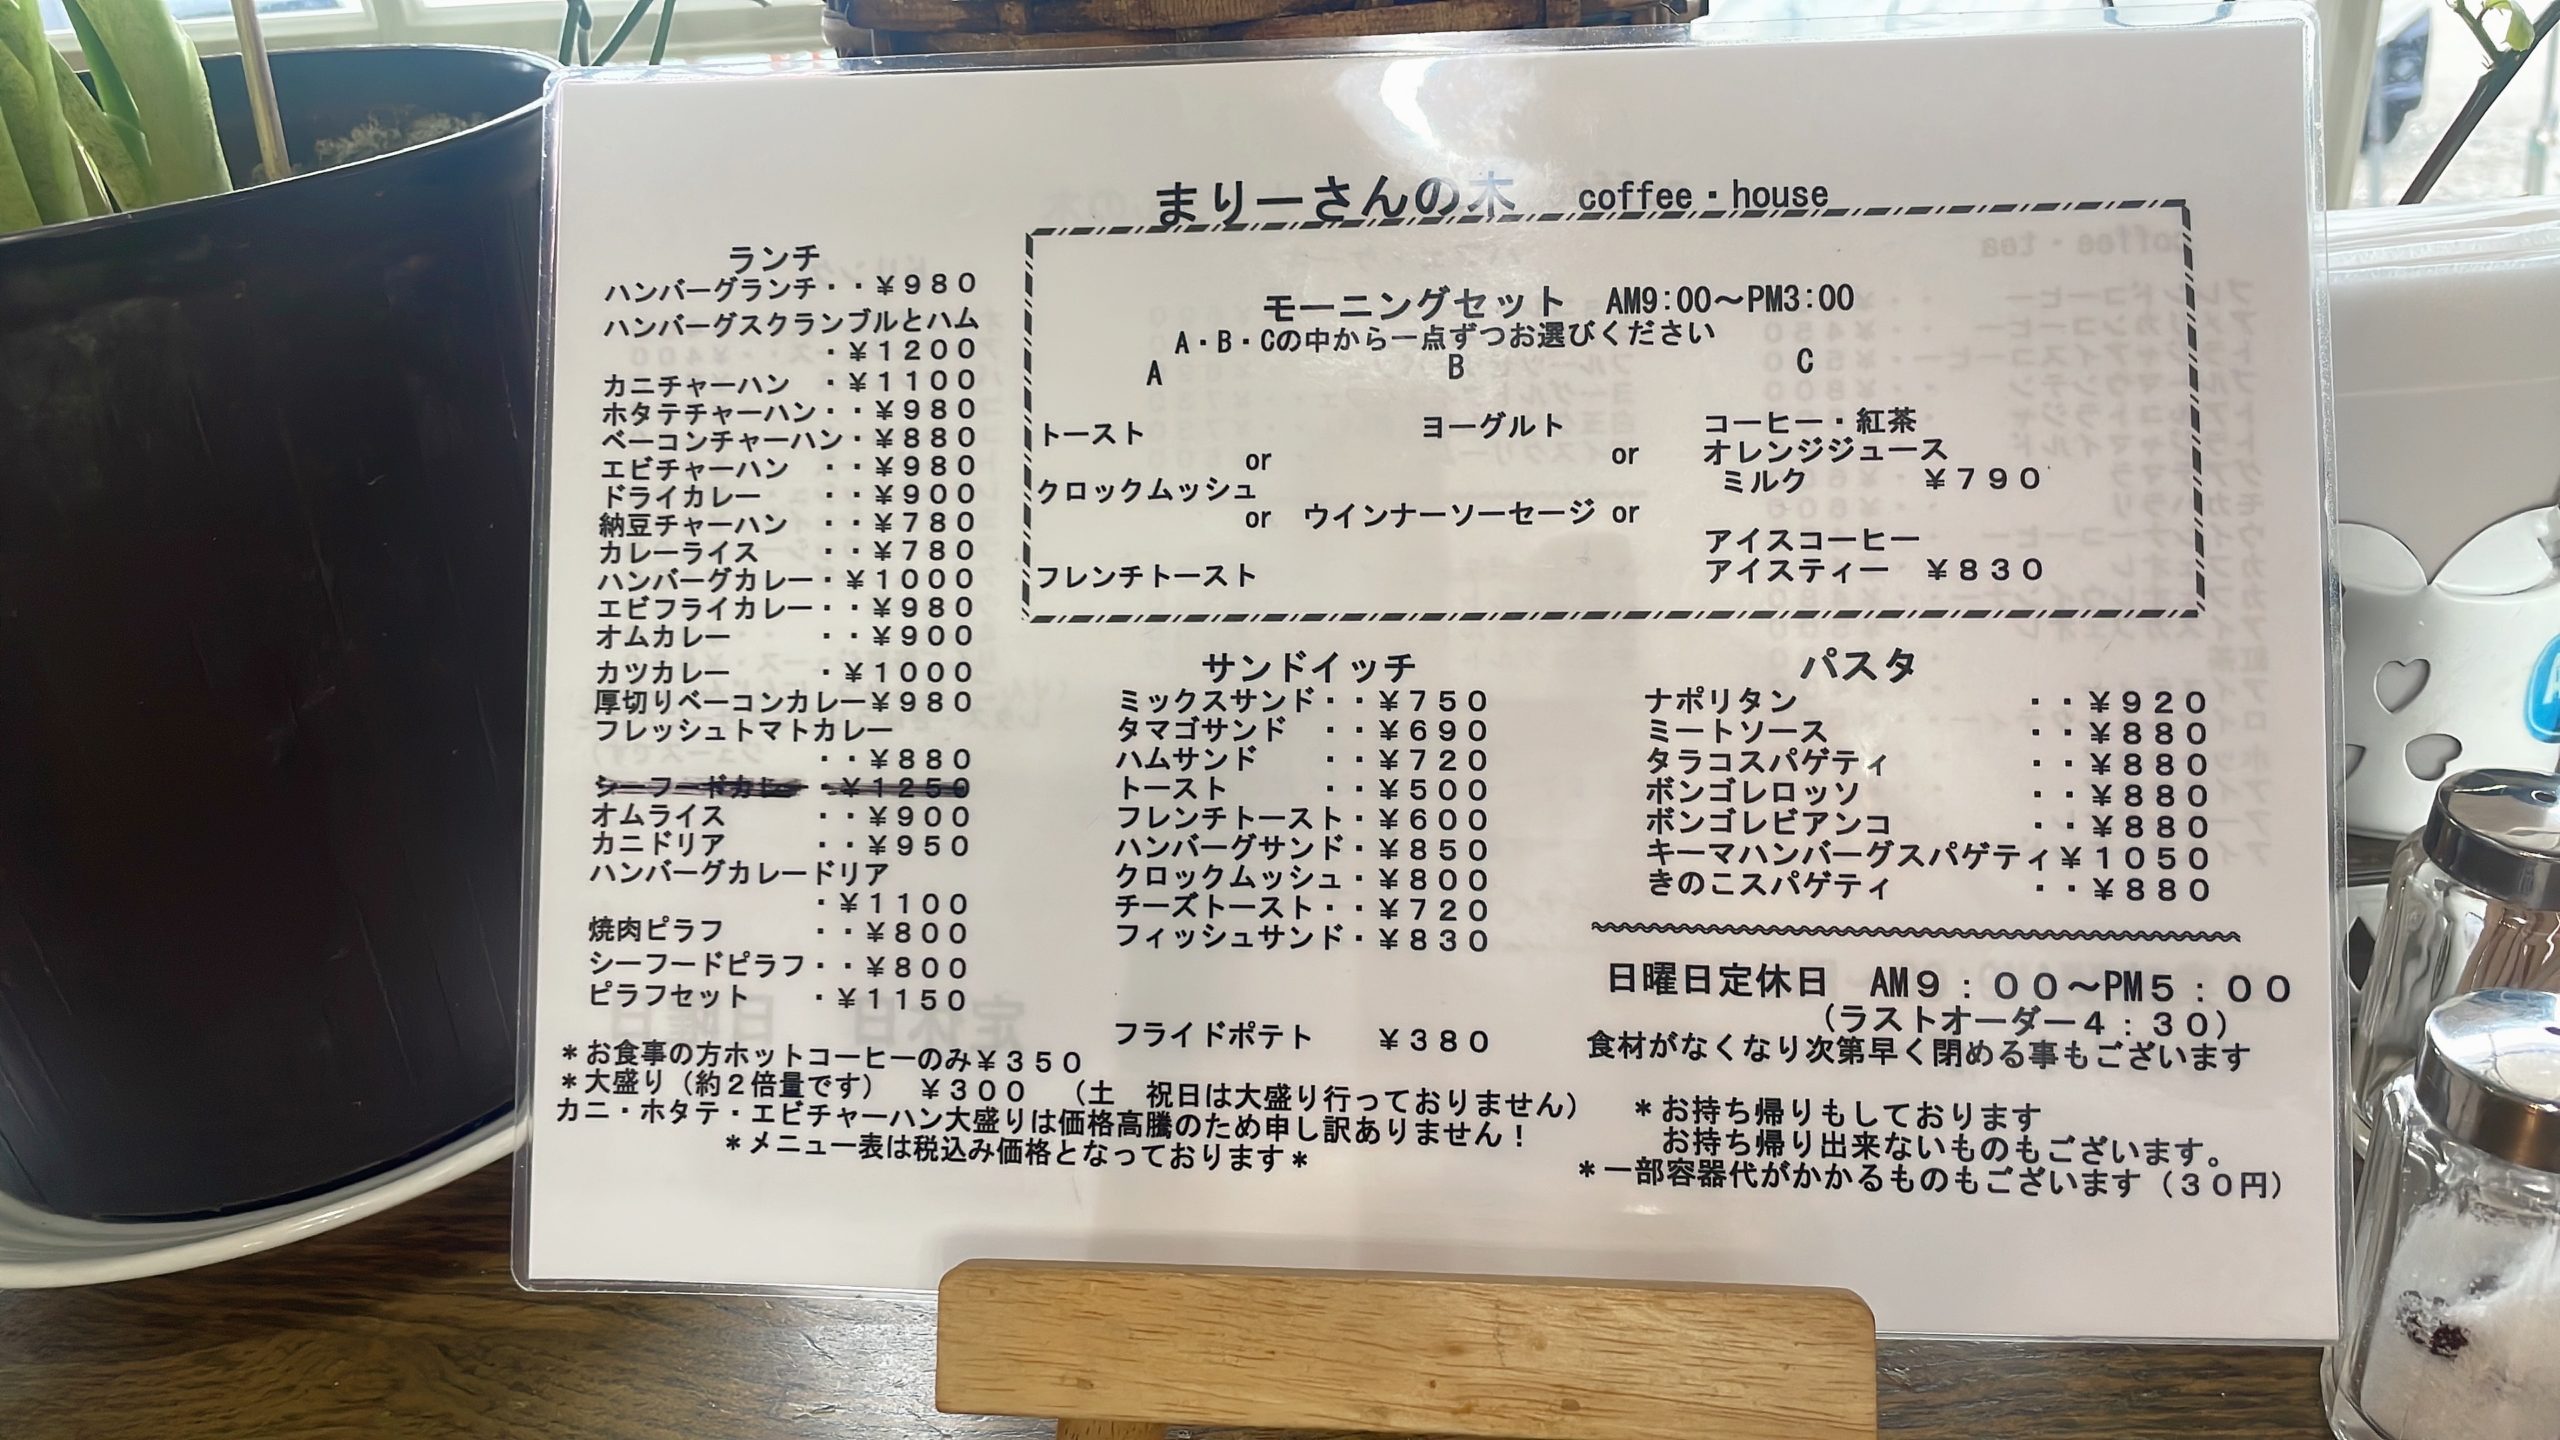 まりーさんの木　coffee・house
ランチ
ハンバーグランチ・・￥９８０
ハンバーグスクランブルとハム
・￥１２００
カニチャーハン　・￥１１００
ホタテチャーハン・・￥９８０
ベーコンチャーハン・￥８８０
エビチャーハン　・・￥９８０
ドライカレー　　・・￥９００
納豆チャーハン　・・￥７８０
カレーライス　　・・￥７８０
ハンバーグカレー・￥１０００
エビフライカレー・・￥９８０
オムカレー　　　・・￥９００
カツカレー　　　・￥１０００
厚切りベーコンカレー￥９８０
フレッシュトマトカレー
・・￥８８０
シーフードカレー・￥１２５０
オムライス　　　・・￥９００
カニドリア　　　・・￥９５０
ハンバーグカレードリア
・￥１１００
焼肉ピラフ　　　・・￥８００
シーフードピラフ・・￥８００
ピラフセット　　・￥１１５０
モーニングセット　AM9:00～PM3:00
A・B・Cの中から一点ずつお選びください
A　B　C
トースト　ヨーグルト　コーヒー・紅茶
or　or　オレンジジュース
クロックムッシュ　ミルク　￥７９０
or　ウインナーソーセージ　or
アイスコーヒー
フレンチトースト　アイスティー　￥８３０
サンドイッチ
ミックスサンド・・￥７５０
タマゴサンド　・・￥６９０
ハムサンド　　・・￥７２０
トースト　　　・・￥５００
フレンチトースト・￥６００
ハンバーグサンド・￥８５０
クロックムッシュ・￥８００
チーズトースト・・￥７２０
フィッシュサンド・￥８３０
フライドポテト　　￥３８０
パスタ
ナポリタン　・・￥９２０
ミートソース　・・￥８８０
タラコスパゲティ　・・￥８８０
ボンゴレロッソ　・・￥８８０
ボンゴレビアンコ　・・￥８８０
キーマハンバーグスパゲティ￥１０５０
きのこスパゲティ　・・￥８８０
日曜日定休日　AM９：００～PM５：００
（ラストオーダー４：３０）
食材がなくなり次第早く閉める事もございます
＊お食事の方ホットコーヒーのみ￥３５０
＊大盛り（約２倍量です）　￥３００　（土　祝日は大盛り行っておりません）
カニ・ホタテ・エビチャーハン大盛りは価格高騰のため申し訳ありません！
＊メニュー表は税込み価格となっております＊
＊お持ち帰りもしております
お持ち帰り出来ないものもございます。
＊一部容器代がかかるものもございます（３０円）